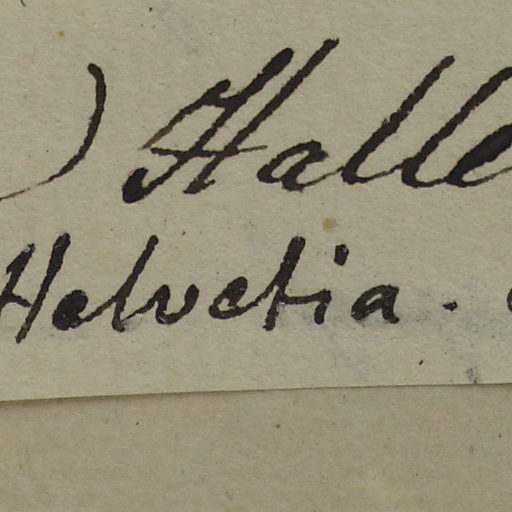 ) Halle
Helvetia.